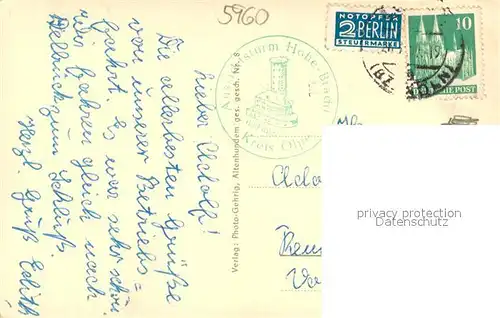 5960
NOTOPFER
2 BERLIN
STEUERMARKE
10
DEUTSCHE POST
Aussichtsturm Hohe-Bracht
Kreis Olpe
Lieber Adolf!
Die allerbesten Grüße
von unserer Betriebs=
fahrt. Es war sehr schön
wir fahren gleich nach
zum Schluß.
Herzl. Gruß Edith
Verlag: Photo-Gehrig, Altenhundem ges. gesch. Nr. 8
privacy protection
Datenschutz